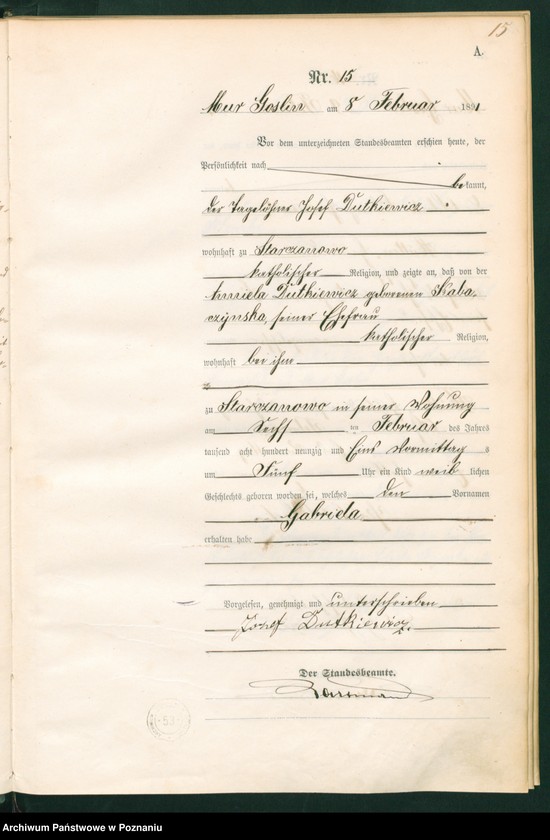 15
A.
Nr. 15
Mur Goslin am 8 Februar 1891
Vor dem unterzeichneten Standesbeamten erschien heute, der
Persönlichkeit nach
bekannt,
der Tagelöhner Josef Dutkiewicz
wohnhaft zu Starczanowo
katholischer Religion, und zeigte an, daß von der
Aniela Dutkiewicz geborenen Kaba,
czynska, seiner Ehefrau
katholischer Religion,
wohnhaft bei ihm
zu Starczanowo in seiner Wohnung
am Sechs ten Februar des Jahres
tausend acht hundert neunzig und Eins Vormittag s
um Fünf Uhr ein Kind weib lichen
Geschlechts geboren worden sei, welches den Vornamen
Gabriela
erhalten habe
Vorgelesen, genehmigt und unterschrieben
Józef Dutkiewicz
Der Standesbeamte.
53
Archiwum Państwowe w Poznaniu